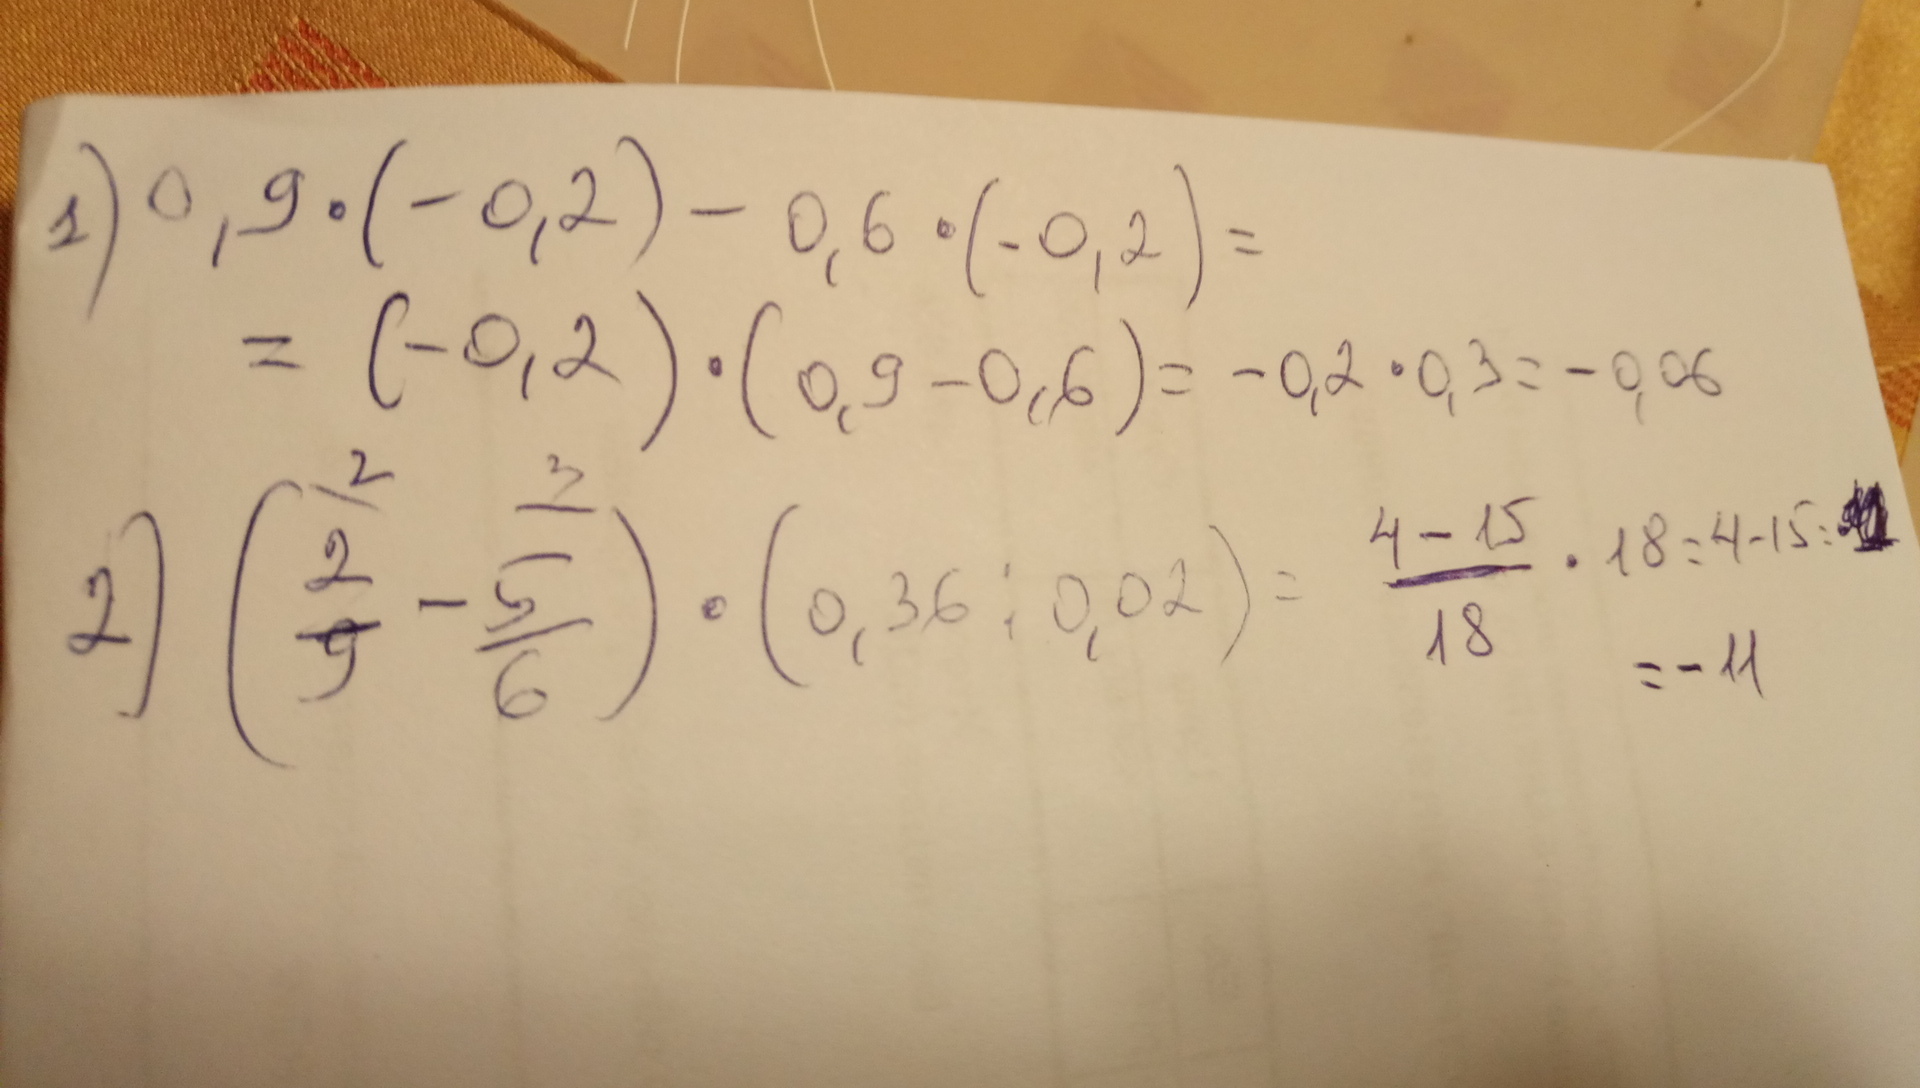 1) 0,9·(-0,2)-0,6·(-0,2)=
=(-0,2)·(0,9-0,6)=-0,2·0,3=-0,06
2) (2/9 - 5/6)·(0,36:0,02)= (4-15)/18 · 18=4-15=
2 3
=-11